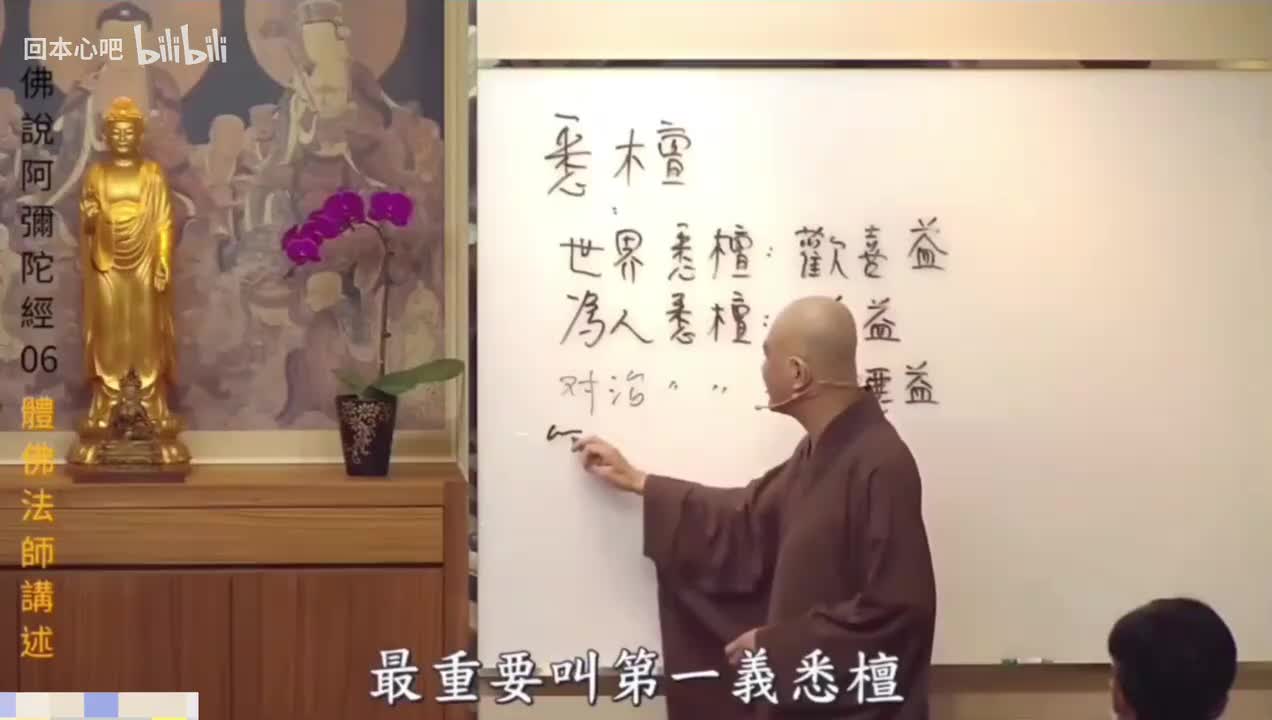 回本心吧 bilibili
佛說阿彌陀經06 體佛法師講述
悉檀
世界悉檀：歡喜益
為人悉檀： 益
对治〃〃 益
最重要叫第一義悉檀